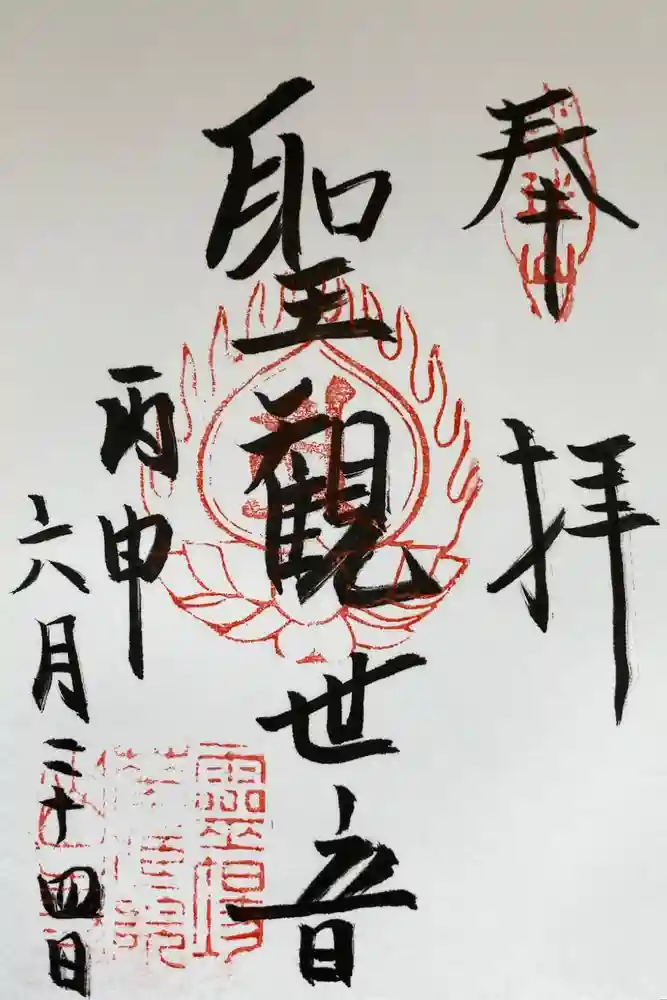 奉拝
聖観世音
丙申
六月二十四日